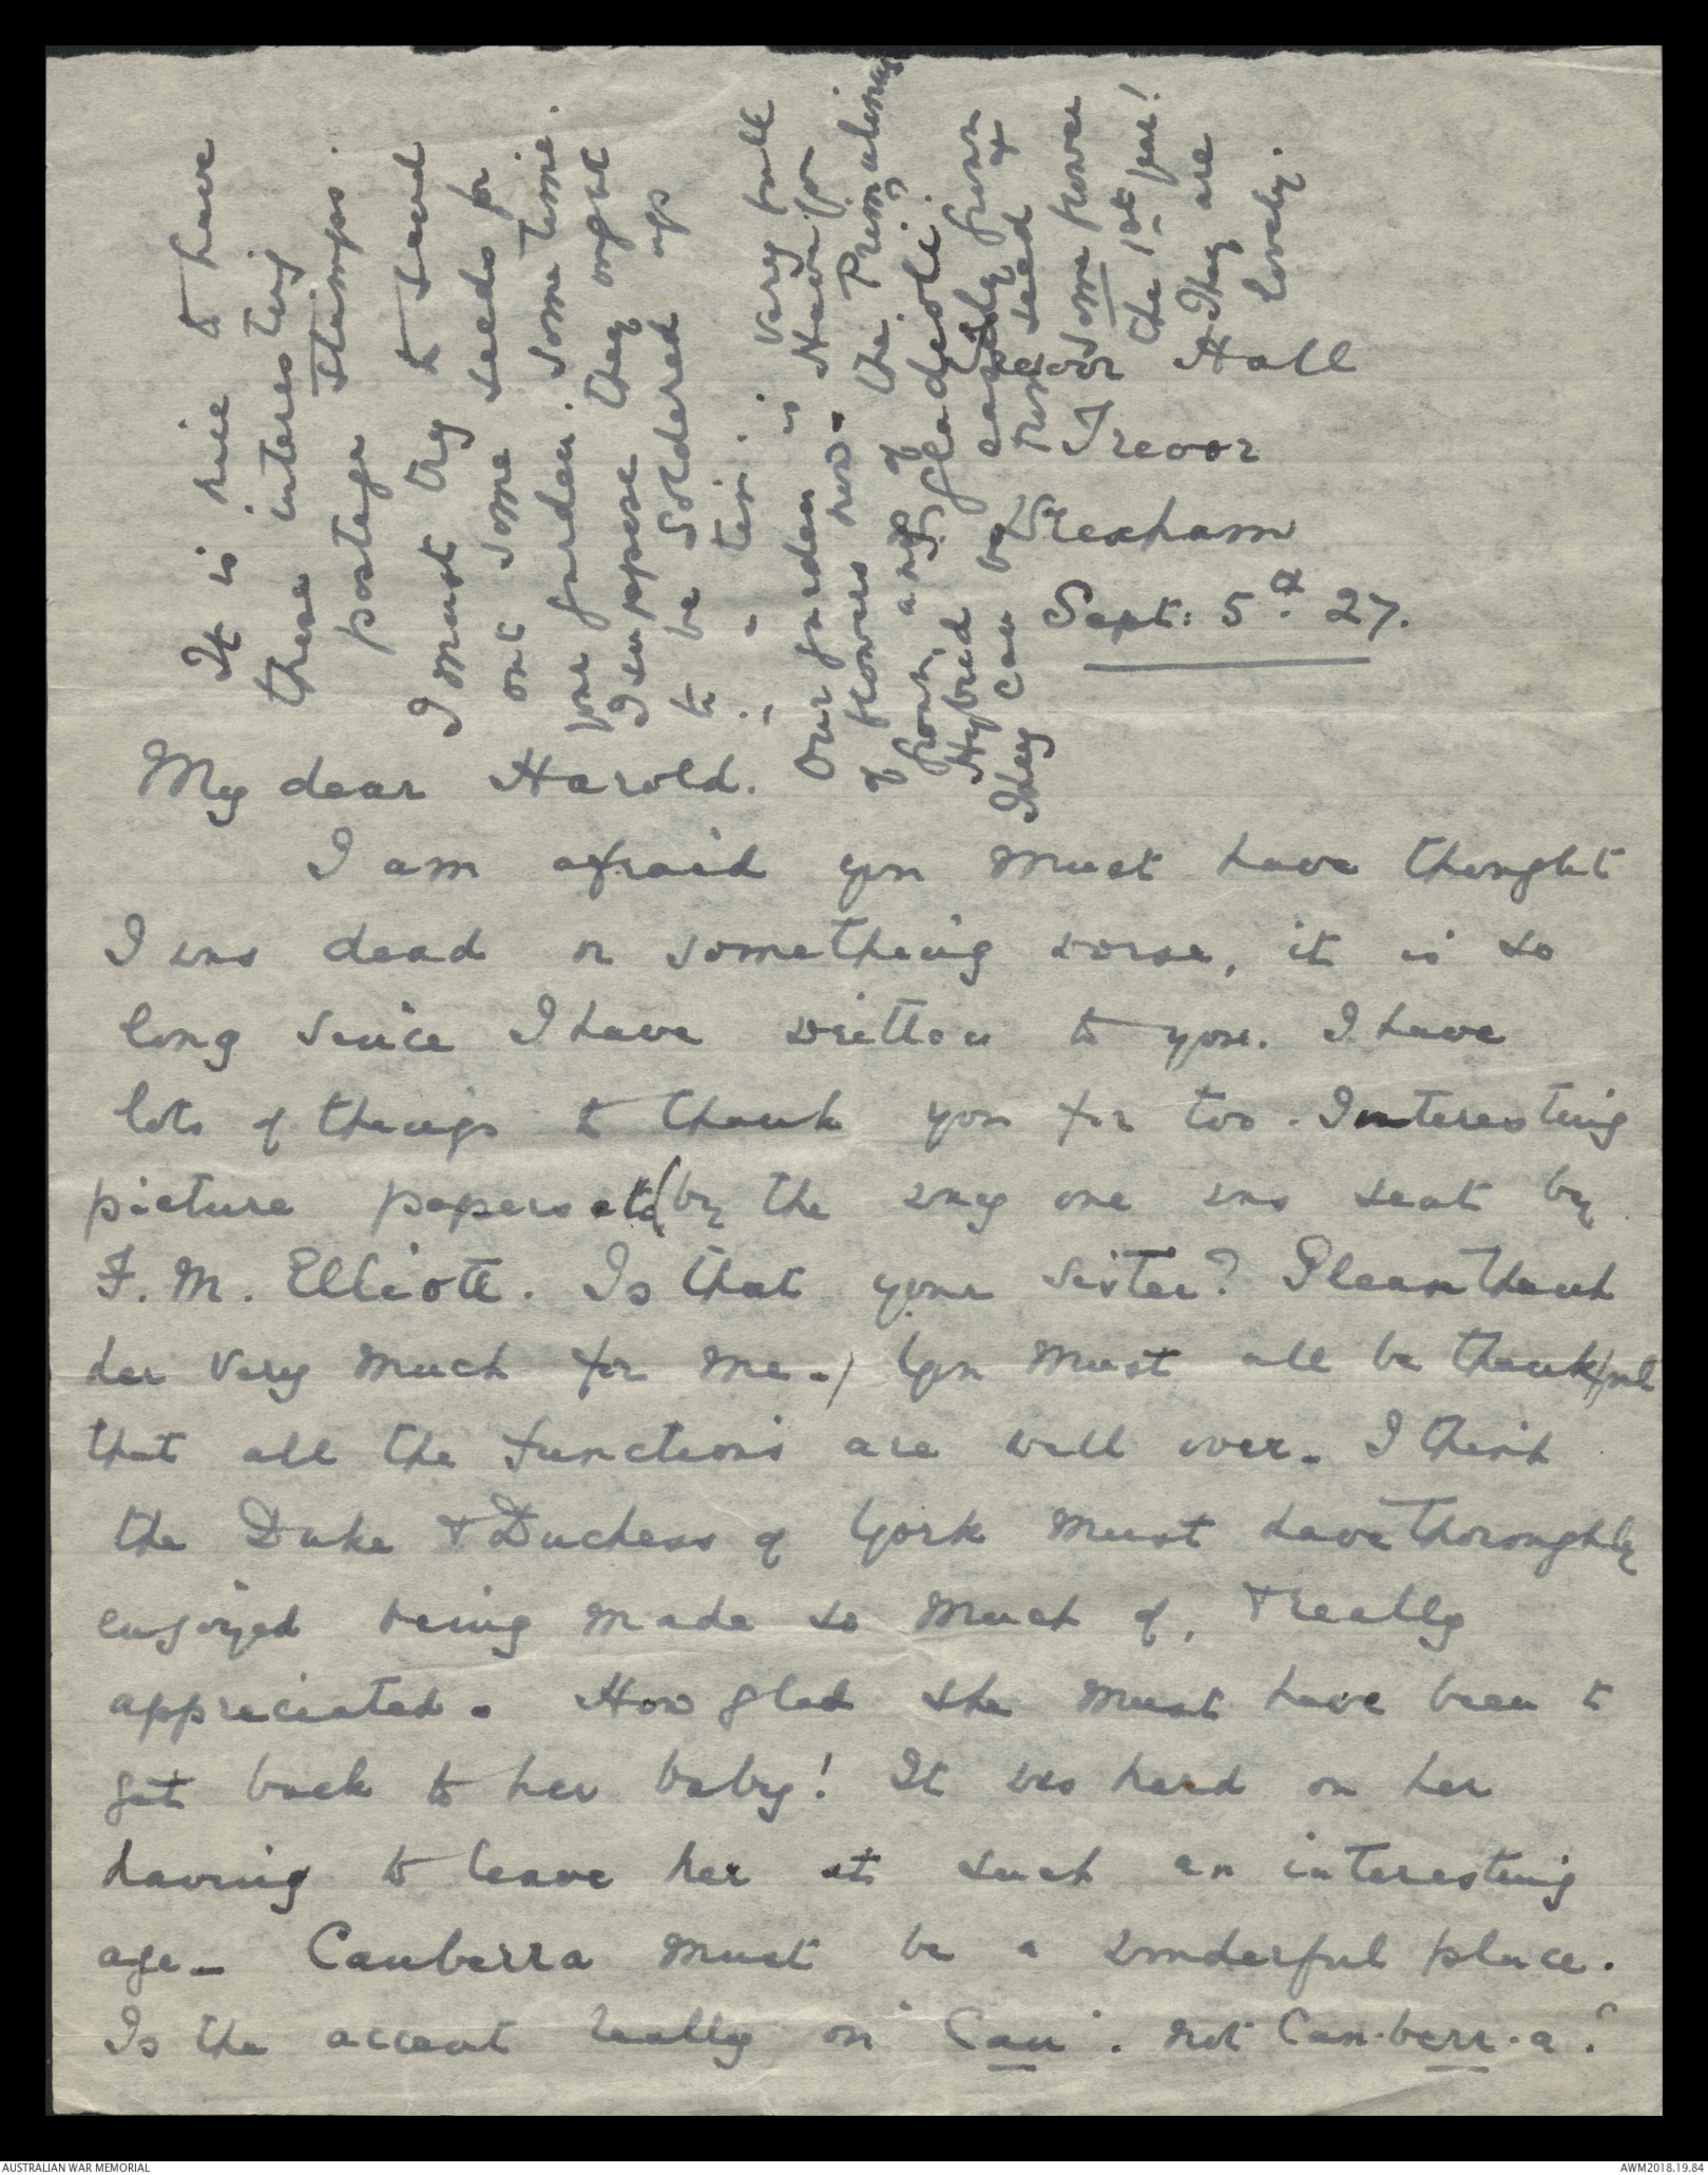 Trevor Hall
Trevor
Wrexham
Sept: 5th 27.
My dear Harold.
I am afraid you must have thought
I was dead or something worse, it is so
long since I have written to you. I have
lots of things to thank you for too. Interesting
picture papers etc (by the way one was sent by
F. M. Elliott. Is that your sister? Please thank
her very much for me.) You must all be thankful
that all the functions are well over. I think
the Duke & Duchess of York must have thoroughly
enjoyed being made so much of, & really
appreciated. How glad she must have been to
get back to her baby! It was hard on her
having to leave her at such an interesting
age - Canberra must be a wonderful place.
Is the accent really on "Can". not Can-berr-a?
It is nice to have
these interesting
postage stamps.
I must try to send
out some seeds for
your garden. Some time.
I suppose they ought
to be soldered up
in a tin. 
Our garden is very full
of flowers now. Have you
grown any of the Primulinus
Hybrid gladioli.
They can be easily grown
from seed &
some flower
the 1st year!
They are
lovely.
AUSTRALIAN WAR MEMORIAL
AWM2018.19.84